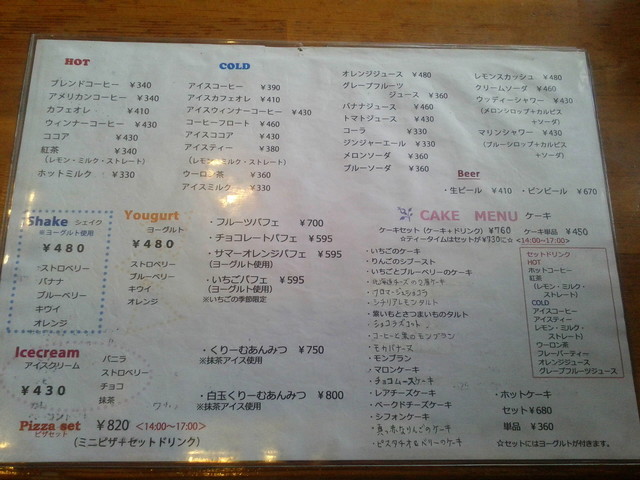 HOT
ブレンドコーヒー ￥340
アメリカンコーヒー ￥340
カフェオレ ￥410
ウィンナーコーヒー ￥430
ココア ￥430
紅茶 ￥340
(レモン・ミルク・ストレート)
ホットミルク ￥330
COLD
アイスコーヒー ￥390
アイスカフェオレ ￥410
アイスウィンナーコーヒー ￥430
コーヒーフロート ￥460
アイスココア ￥430
アイスティー ￥380
(レモン・ミルク・ストレート)
ウーロン茶 ￥360
アイスミルク ￥330
オレンジジュース ￥480
グレープフルーツ
ジュース ￥360
バナナジュース ￥460
トマトジュース ￥430
コーラ ￥330
ジンジャーエール ￥330
メロンソーダ ￥360
ブルーソーダ ￥360
レモンスカッシュ ￥480
クリームソーダ ￥460
ウッディーシャワー ￥430
(メロンシロップ+カルピス
+ソーダ)
マリンシャワー ￥430
(ブルーシロップ+カルピス
+ソーダ)
Beer
・生ビール ￥410 ・ビンビール ￥670
Shake シェイク
※ヨーグルト使用
￥480
ストロベリー
バナナ
ブルーベリー
キウイ
オレンジ
Yougurt
ヨーグルト
￥480
ストロベリー
ブルーベリー
キウイ
オレンジ
・フルーツパフェ ￥700
・チョコレートパフェ ￥595
・サマーオレンジパフェ ￥595
(ヨーグルト使用)
・いちごパフェ ￥595
(ヨーグルト使用)
※いちごの季節限定
Icecream
アイスクリーム
￥430
バニラ
ストロベリー
チョコ
抹茶
・くりーむあんみつ ￥750
※抹茶アイス使用
・白玉くりーむあんみつ ￥800
※抹茶アイス使用
Pizza set ￥820 <14:00～17:00>
ピザセット
(ミニピザ+セットドリンク)
CAKE MENU ケーキ
ケーキセット (ケーキ+ドリンク) ￥760 ケーキ単品 ￥450
☆ティータイムはセットが￥730に☆ <14:00～17:00>
・いちごのケーキ
・りんごのシブースト
・いちごとブルーベリーのケーキ
・北海道チーズの2層ケーキ
・シチリアレモンタルト
・紫いもとさつまいものタルト
・ショコラズコット
・コーヒーと栗のモンブラン
・モカバナーヌ
・モンブラン
・マロンケーキ
・チョコムースケーキ
・レアチーズケーキ
・ベークドチーズケーキ
・シフォンケーキ
・真っ赤なりんごのケーキ
・ピスタチオ&ベリーのケーキ
セットドリンク
HOT
ホットコーヒー
紅茶
(レモン・ミルク・
ストレート)
COLD
アイスコーヒー
アイスティー
(レモン・ミルク・
ストレート)
ウーロン茶
フレーバーティー
オレンジジュース
グレープフルーツジュース
・ホットケーキ
セット￥680
単品 ￥360
☆セットにはヨーグルトが付きます。